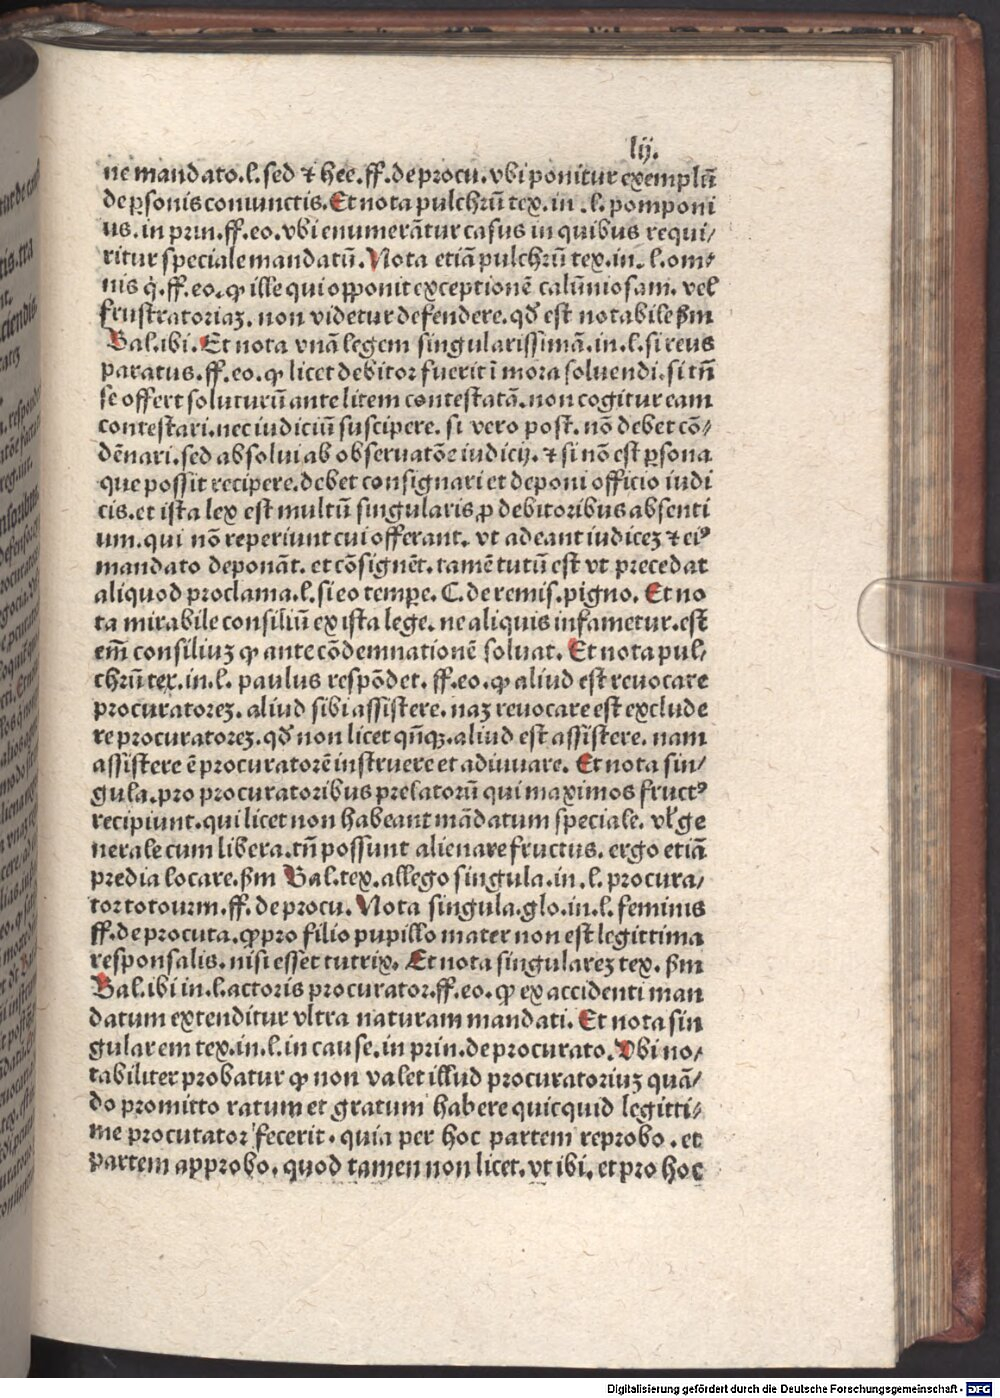 lij.
ne mandato.l.sed ⁊ hee.ff.de procu.vbi ponitur exemplū
de ꝑsonis coniunctis.Et nota pulchrū tex.in .l.pomponi
us.in prin.ff.eo.vbi enumerātur casus in quibus requi/
ritur speciale mandatū.Nota etiā pulchrū tex.in.l.om/
nis q̇.ff.eo.ꝙ ille qui opponit exceptionē calūniosam.vel
frustratoriaꝫ.non videtur defendere.qď est notabile ẞm
Bal.ibi.Et nota vnā legem singularissimā.in.l.si reus
paratus.ff.eo.ꝙ licet debitor fuerit ī mora soluendi.si tn̄
se offert soluturū ante litem contestatā.non cogitur eam
contestari.nec iudiciū suscipere.si vero post.nō debet cō/
dēnari.sed absolui ab obseruatōe iudicij.⁊ si nō est ꝑsona
que possit recipere.debet consignari et deponi officio iudi
cis.et ista lex est multū singularis ꝓ debitoribus absenti
um.qui nō reperiunt cui offerant.vt adeant iudiceꝫ ⁊ eiꝰ
mandato deponāt.et cōsignēt.tamē tutū est vt precedat
aliquod proclama.l.si eo tempe.C.de remis.pigno.Et no
ta mirabile consiliū ex ista lege.ne aliquis infametur.est
em̄ consiliuꝫ ꝙ ante cōdemnationē soluat.Et nota pul/
chrū tex.in.l. paulus respōdet.ff.eo.ꝙ aliud est reuocare
procuratoreꝫ.aliud sibi assistere.naꝫ reuocare est exclude
re procuratoreꝫ.qď non licet qn̄qꝫ.aliud est assistere.nam
assistere ē procuratorē instruere et adiuuare.Et nota sin/
gula.pro procuratoribus prelatorū qui maximos fructꝰ
recipiunt.qui licet non habeant mādatum speciale.vl̓ ge
nerale cum libera.tn̄ possunt alienare fructus.ergo etiā
predia locare.ẞm Bal.tex.allego singula.in.l.procura/
tor totourm.ff.de procu.Nota singula.glo.in.l.feminis
ff.de procuta.ꝙ pro filio pupillo mater non est legittima
responsalis.nisi esset tutrix.Et nota singulareꝫ tex.ẞm
Bal.ibi in.l.actoris procurator.ff.eo.ꝙ ex accidenti man
datum extenditur vltra naturam mandati.Et nota sin
gularem tex.in.l.in cause.in prin.de procurato.Vbi no/
tabiliter probatur ꝙ non valet illud procuratoriuꝫ quā/
do promitto ratum et gratum habere quicquid legitti/
me procutator fecerit.quia per hoc partem reprobo.et
partem approbo.quod tamen non licet.vt ibi.et pro hoc
Digitalisierung gefördert durch die Deutsche Forschungsgemeinschaft - DFG